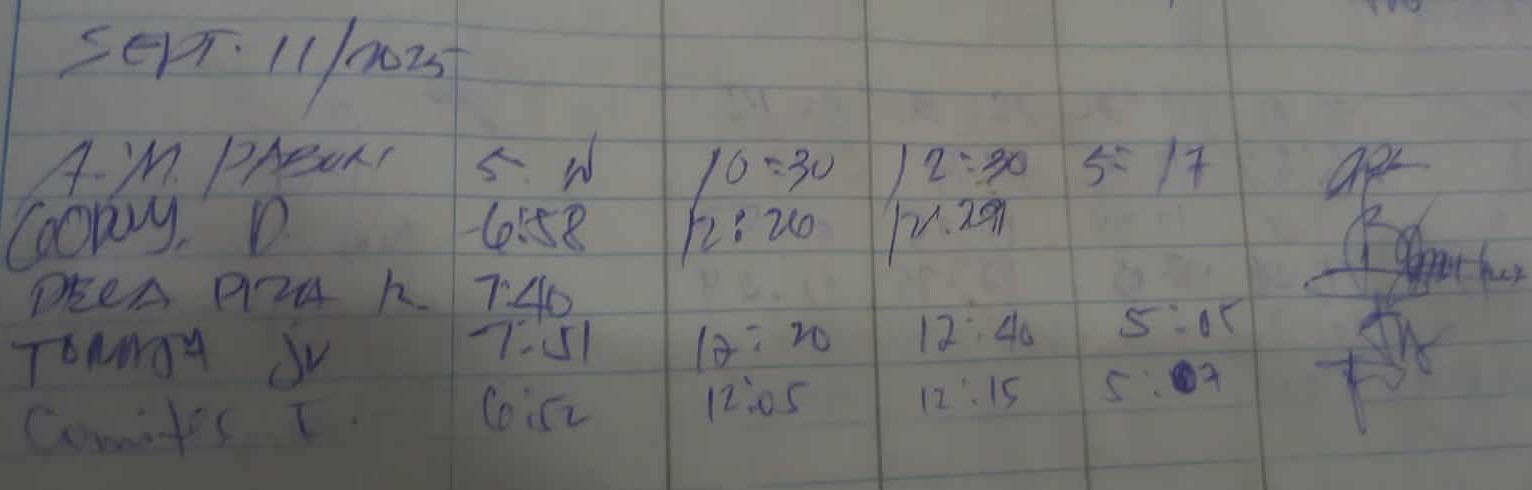 SEPT. 11/2025
A.M. PABUAI 5: 10:30 12:30 5:17
D. 6:58 12:26 12:29
DELA PIZA R. 7:40
JV 7:51 12:20 12:40 5:05
Comites I. 6:52 12:05 12:15 5:07